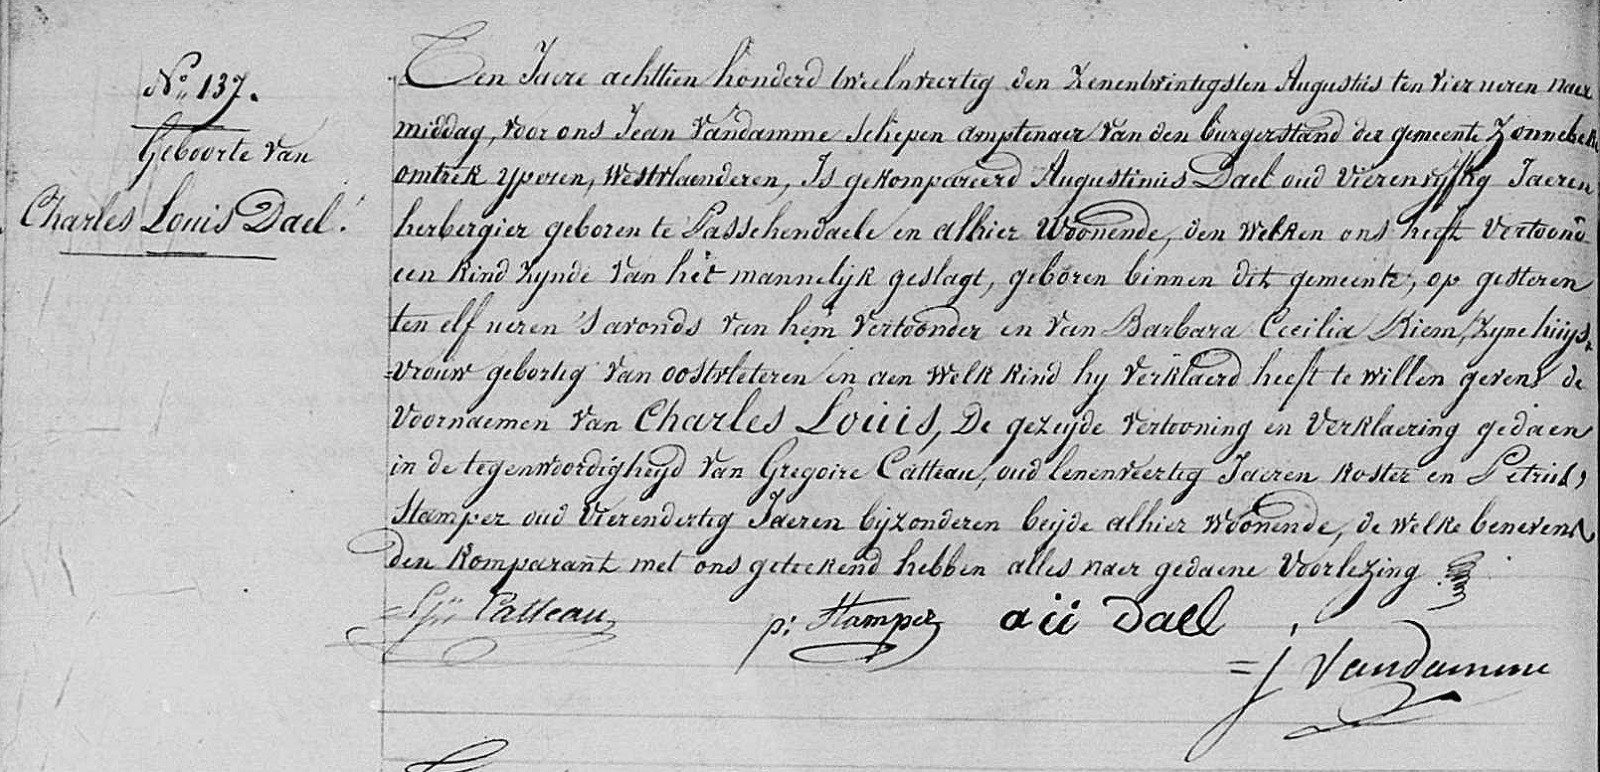 No. 137.
Geboorte van
Charles Louis Dael.
Ten Jaere achttien honderd tweenveertig den zevenentwintigsten Augustus ten vier ueren naer
middag, voor ons Jean Vandamme schepen amptenaer van den burgerstand der gemeente Zonnebeke
omtrek yperen, Westvlaenderen, Is gekompareerd Augustinus Dael oud vierenvyftig Jaeren
herbergier geboren te Passchendaele en alhier Woonende, den welken ons heeft vertoond
een kind zynde van het mannelijk geslagt, geboren binnen dit gemeente, op gisteren
ten elf ueren 's avonds van hem vertoonder en van Barbara Cecilia Riem, zyne huys-
=vrouw geboortig van oostvleteren en aen welk kind hy verklaerd heeft te willen geven de
voornaemen van Charles Louis, De gezeyde vertooning en verklaering gedaen
in de tegenwoordigheyd van Gregoire Catteau, oud Jaeren koster en Petrus
Stamper oud vierendertig Jaeren bijzonderen beijde alhier woonende, de welke benevens
den komparant met ons geteekend hebben alles naer gedaene voorlezing
Catteau
p: Stamper
au Dael
= j Vandamme